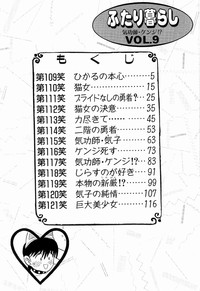 ふたり暮らし
気功師・ケンジ!?
VOL.9
もくじ
第109笑 ひかるの本心 5
第110笑 猫女 15
第111笑 プライドなしの勇者? 25
第112笑 猫女の決意 35
第113笑 力尽きて… 45
第114笑 二階の勇者 53
第115笑 気功師・気子 63
第116笑 ケンジ死す 73
第117笑 気功師・ケンジ!? 83
第118笑 じらすのが好き 91
第119笑 本物の新蔵!? 99
第120笑 気子の純情 107
第121笑 巨大美少女 116